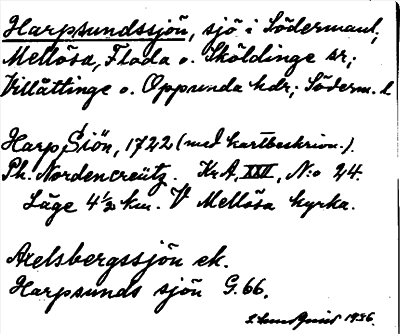 Harpsundssjön, sjö i Södermanl,
Mellösa, Floda o. Sköldinge sr;
Villåttinge o. Oppunda hdr; Söderm. l
Harp Siön, 1722 (med kartbeskrivn.).
Ph. Nordencreütz. KrA, XXVI, N:o 24.
Läge 4½ km. V Mellösa kyrka.
Axelsbergssjön ek.
Harpsunds sjön G. 66.
1936